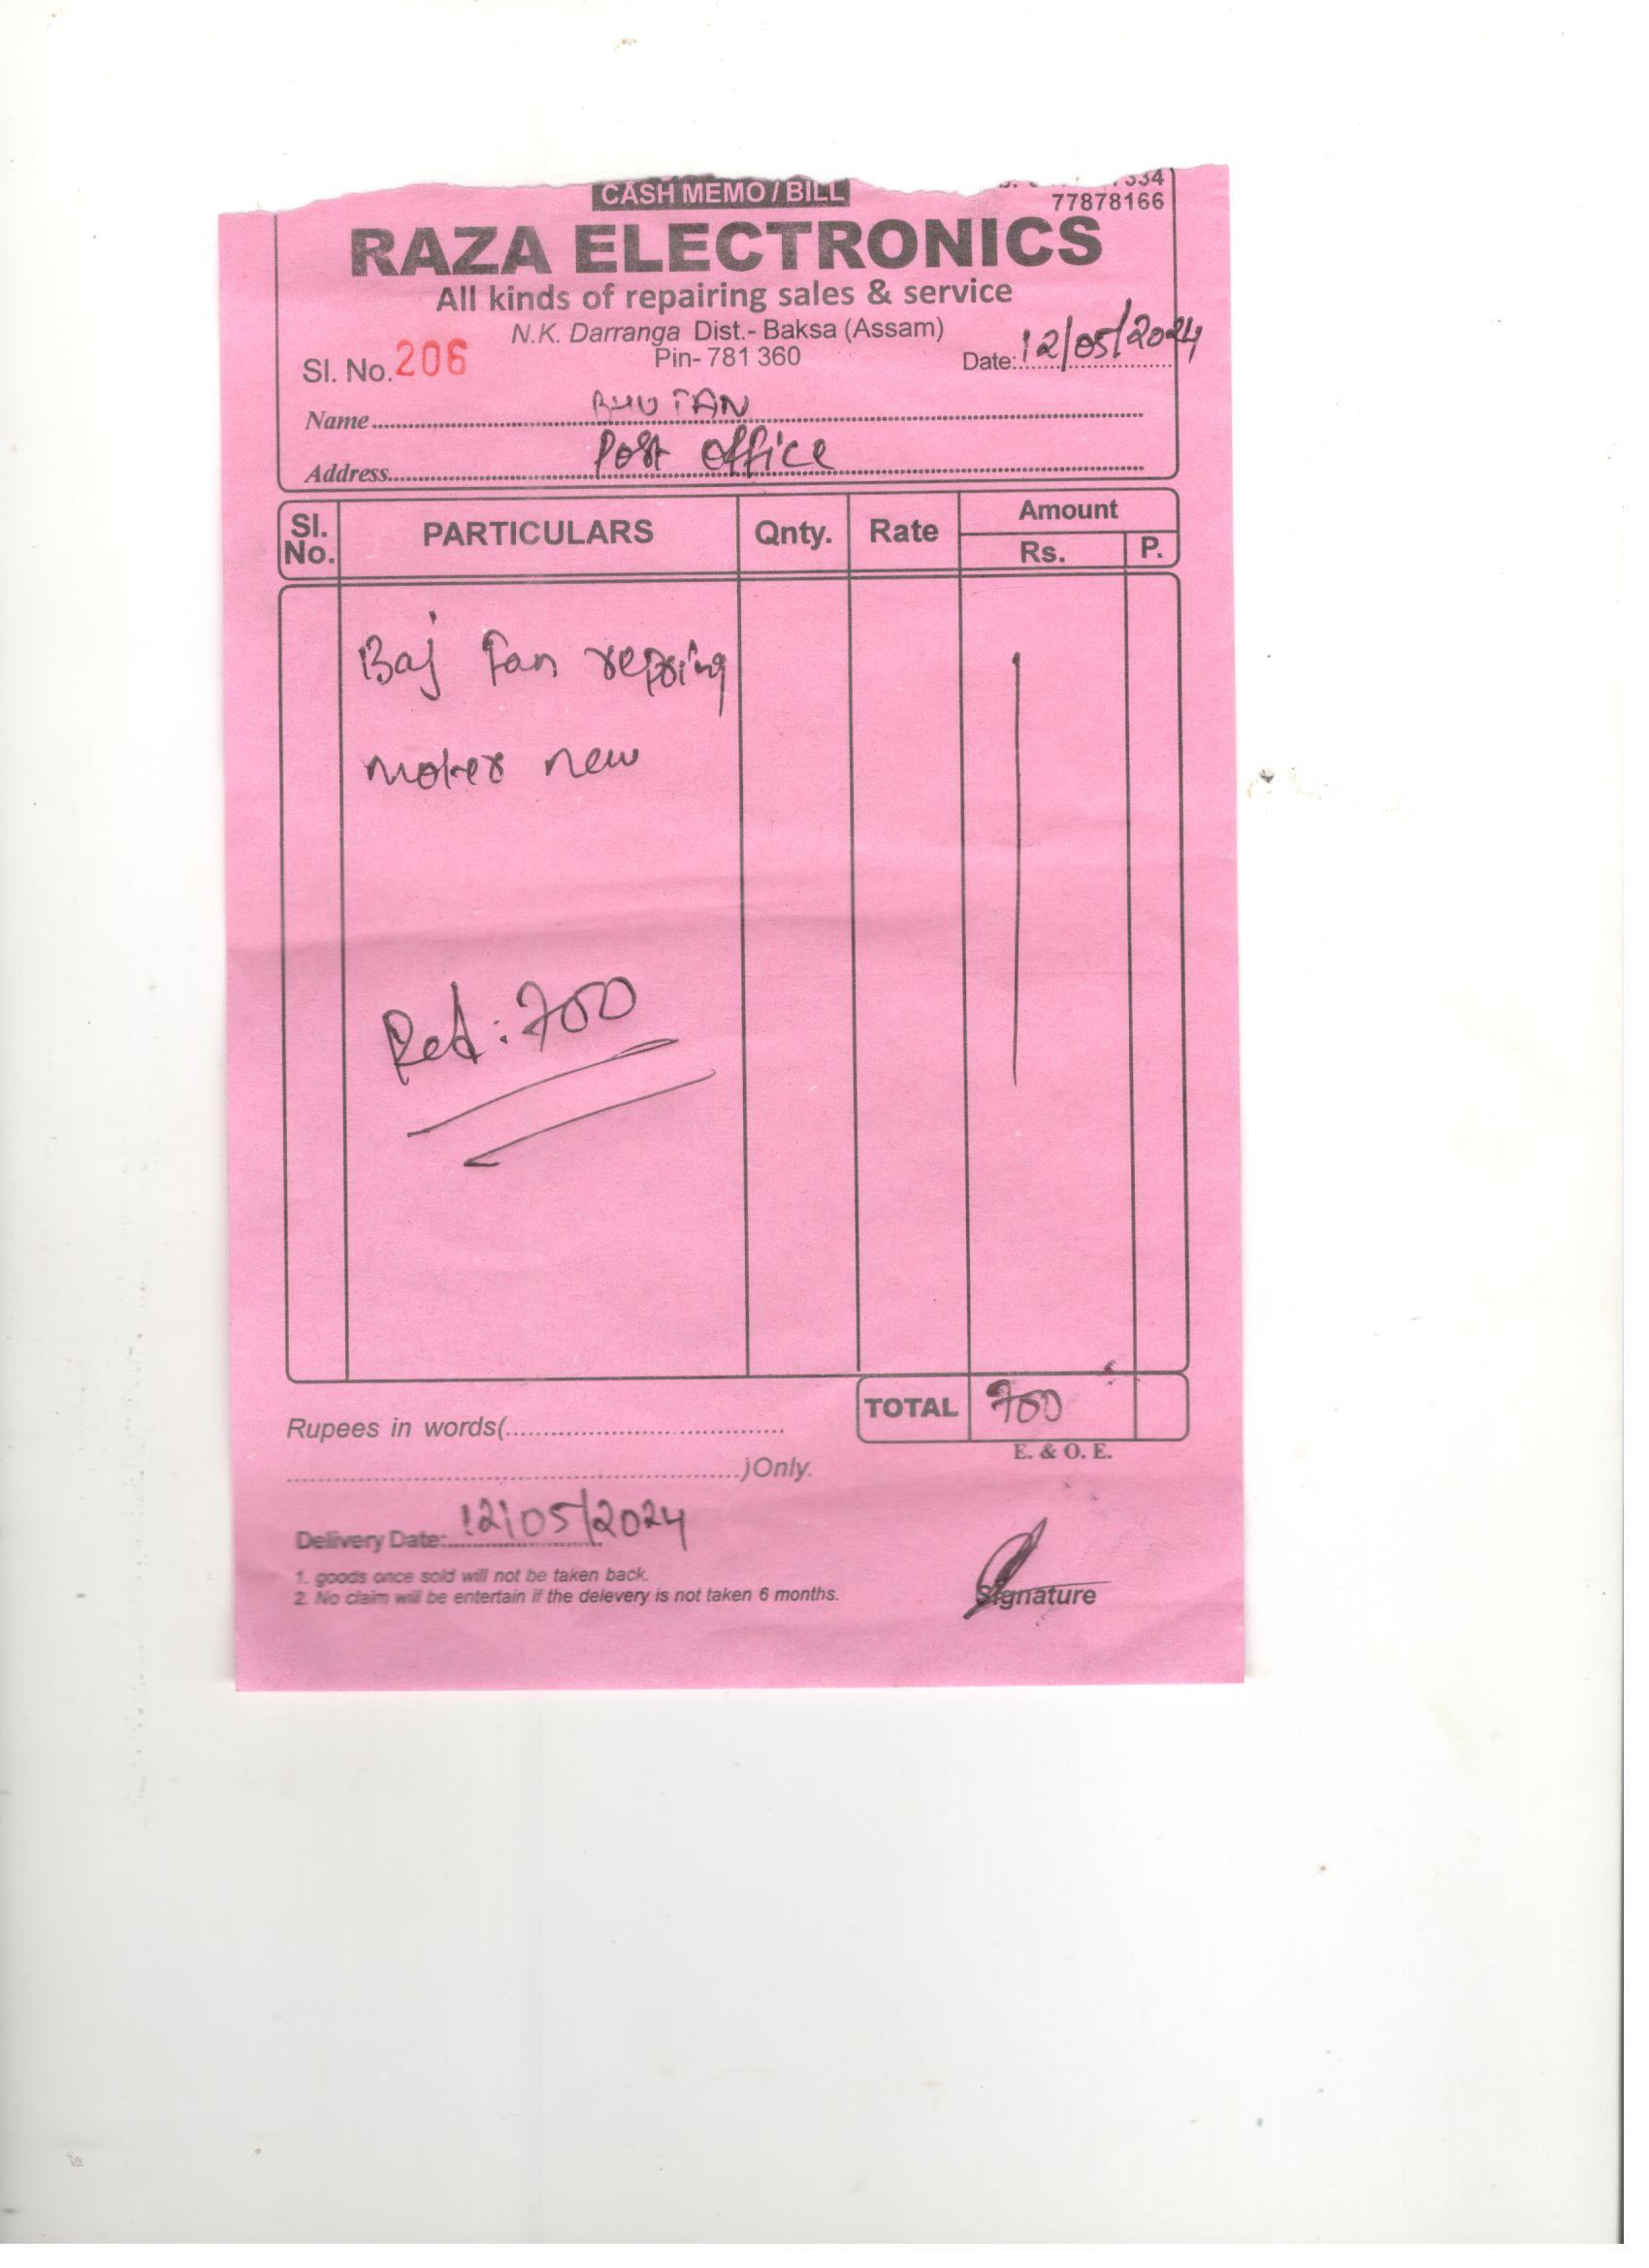 CASH MEMO / BILL
334
77878166
RAZA ELECTRONICS
All kinds of repairing sales & service
N.K. Darranga Dist.- Baksa (Assam)
Pin- 781 360
Sl. No. 206
Date: 12/05/2024
Name BHUTAN
Address Post office
Sl. No. PARTICULARS Qnty. Rate Amount
Rs. P.
Baj fan repring
moter new
Red: 700
TOTAL 700
E. & O. E.
Rupees in words(
)Only.
Delivery Date: 12/05/2024
1. goods once sold will not be taken back.
2. No claim will be entertain if the delevery is not taken 6 months.
Signature